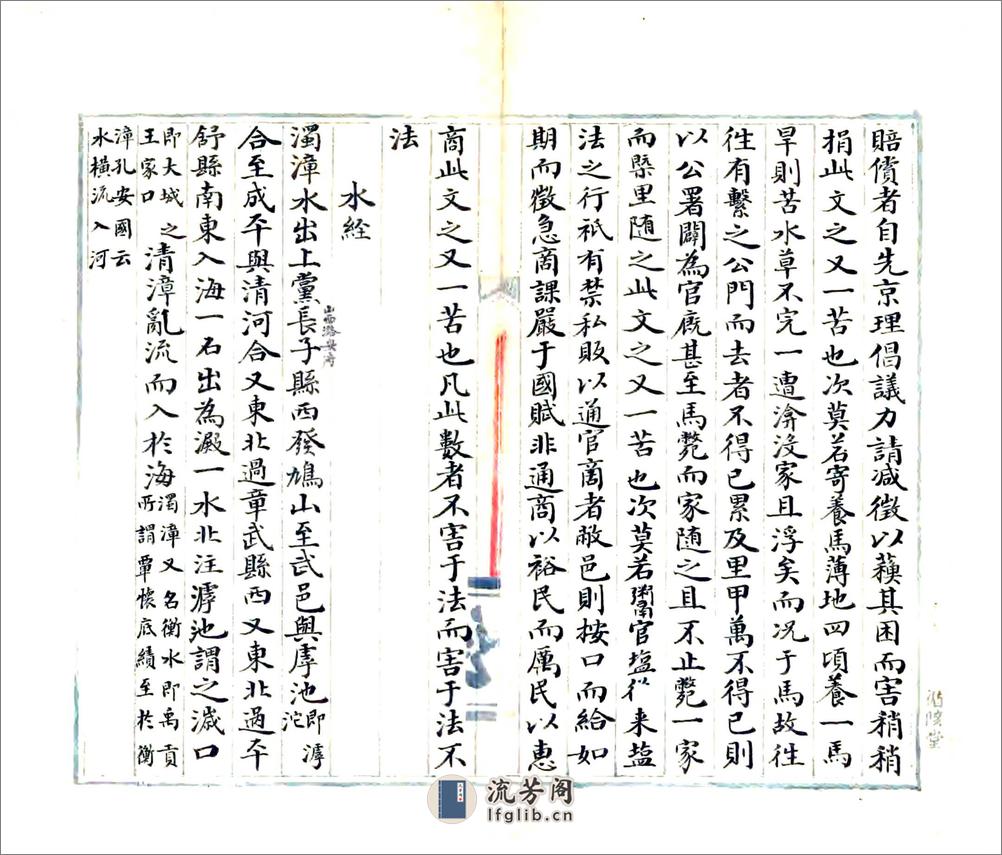 賠償者自先京理倡議力請減徵以蘓其困而害稍稍
捐此文之又一苦也次莫若寄養馬薄地四頃養一馬
旱則苦水草不完一遭渰没家且浮矣而况于馬故徃
徃有繫之公門而去者不得已累及里甲萬不得已則
以公署闢為官廐甚至馬斃而家随之且不止斃一家
而槩里随之此文之又一苦也次莫若官塩從来塩
法之行祇有禁私販以通官商者敝邑則按口而給如
期而徵急商課嚴于國賦非通商以裕民而厲民以惠
商此文之又一苦也凡此數者不害于法而害于法不
法
水經
濁漳水出上黨長子縣西發鳩山至武邑與虖池即滹沱
山西潞安府
合至成平與清河合又東北過章武縣西又東北過平
舒縣南東入海一石出為澱一水北注滹池謂之濊口
即大城之王家口清漳亂流而入於海濁漳又名衡水即禹貢所謂覃懷底績至於衡
漳孔安國云水横流入河
流芳阁
lfglib.cn